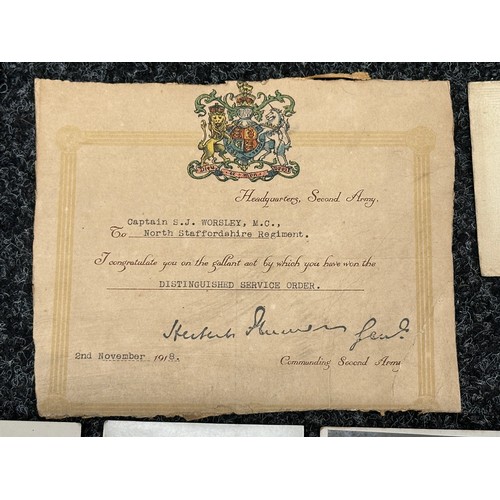 DIEU ET MON DROIT
Headquarters, Second Army.
Captain S.J. WORSLEY, M.C.,
To North Staffordshire Regiment.
I congratulate you on the gallant act by which you have won the
DISTINGUISHED SERVICE ORDER.
Herbert Plumer Genl.
2nd November 1918.
Commanding Second Army